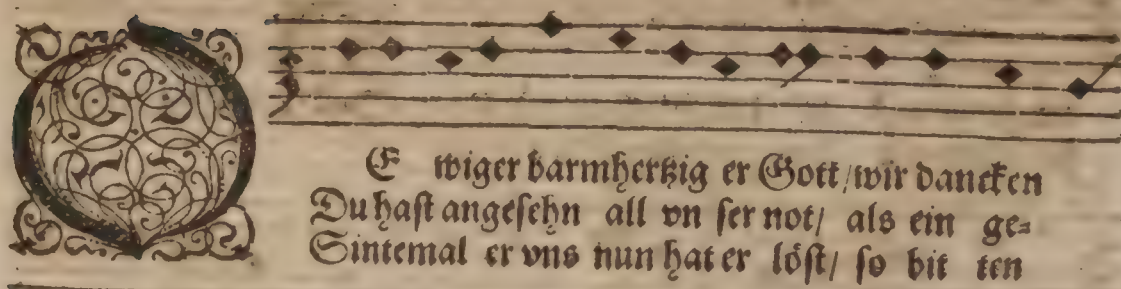 O
E wiger barmhertzig er Gott/ wir dancken
Du hast angesehn all vn ser not/ als ein ge=
Sintemal er vns nun hat er löst/ so bit ten